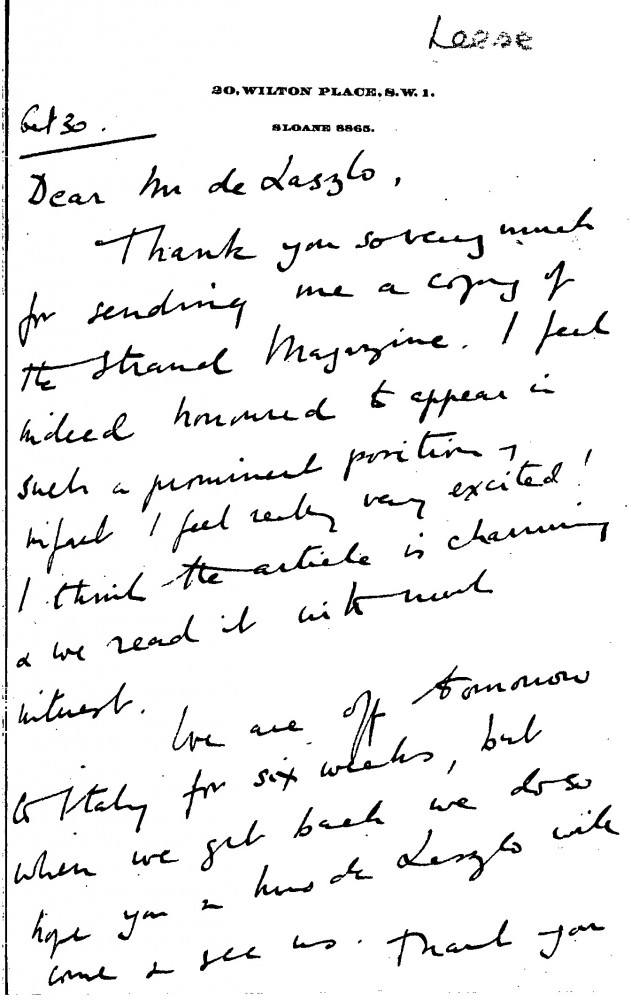 Leese
20, WILTON PLACE, S.W. 1.
SLOANE 8865.
Oct 30.
Dear Mr de Laszlo,
Thank you so very much
for sending me a copy of
the Strand Magazine. I feel
indeed honoured to appear in
such a prominent position,
infact I feel really very excited!
I think the article is charming
& we read it with much
interest.
We are off tomorrow
to Italy for six weeks, but
when we get back we do so
hope you & Mrs de Laszlo will
come & see us. Thank you